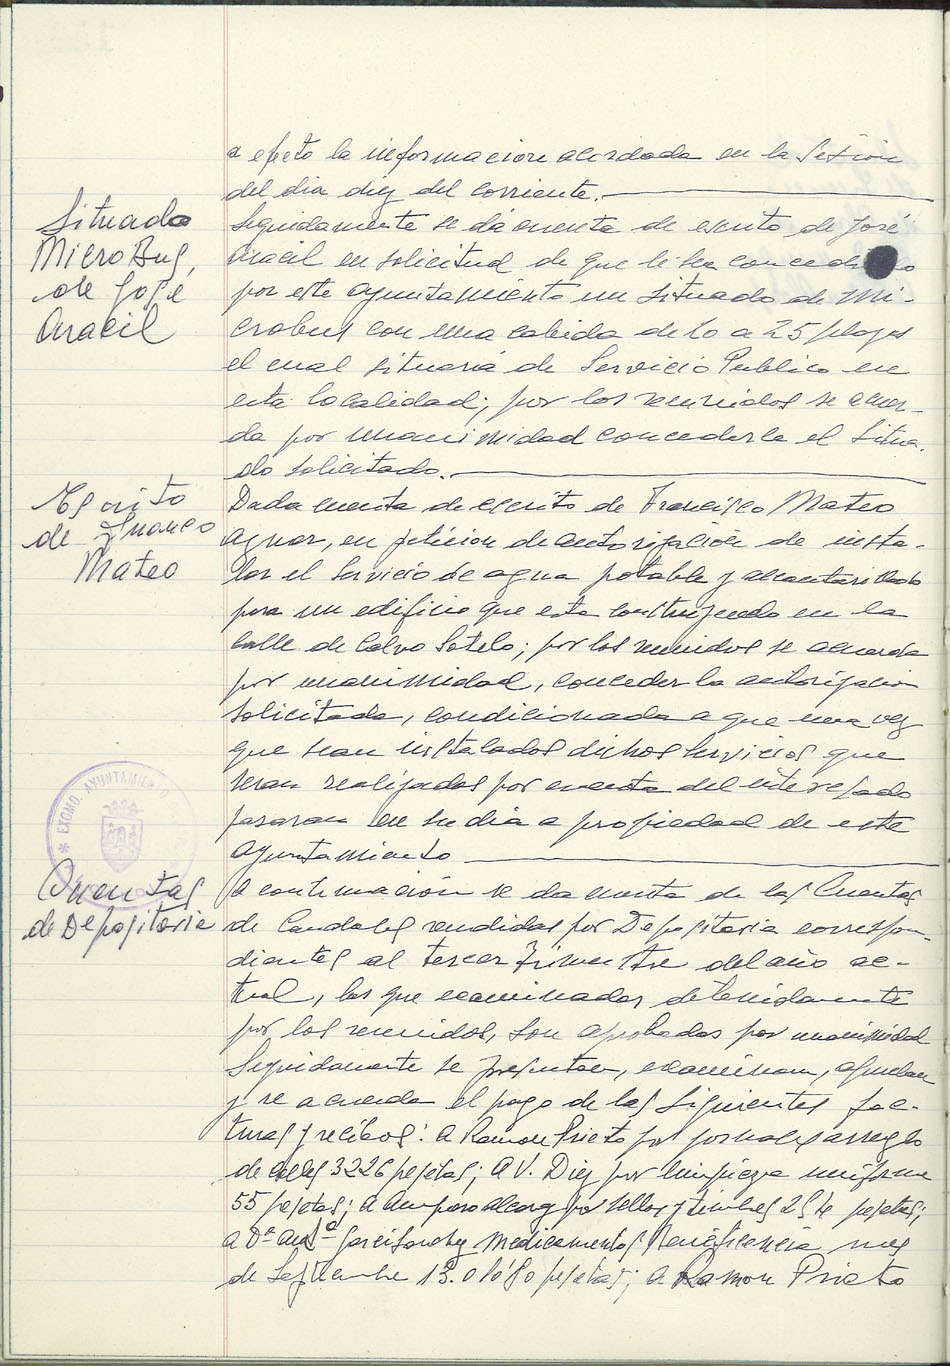 a efecto la informacion acordada en la Sesion
del dia diez del corriente.
Situado
MicroBus,
de José
Aracil
Seguidamente se dá cuenta de escrito de José
Aracil en solicitud de que le sea concedido
por este Ayuntamiento un Situado de Mi-
crobus con una cabida de 20 a 25 plazas
el cual situaria de Servicio Publico en
esta localidad; por los reunidos se acuer-
da por unanimidad concederle el Situa-
do solicitado.
Escrito
de Franco
Mateo
Dada cuenta de escrito de Francisco Mateo
Aznar, en peticion de autorización de insta-
lar el Servicio de agua potable y alcantarillado
para un edificio que esta construyendo en la
Calle de Calvo Sotelo; por los reunidos se acuerda
por unanimidad, conceder la autorizacion
solicitada, condicionada a que una vez
que sean instalados dichos Servicios que
seran realizados por cuenta del interesado
pasaran en su dia a propiedad de este
Ayuntamiento
EXCMO. AYUNTAMIENTO
Cuentas
de Depositaria
A continuación se da cuenta de las Cuentas
de Caudales rendidas por Depositaria correspon-
dientes al tercer Trimestre del año ac-
tual, las que examinadas detenidamente
por los reunidos, son aprobadas por unanimidad
Seguidamente se presentan, examinan, aprueban
y se acuerda el pago de las Siguientes fac-
turas y recibos: a Ramon Prieto por jornales arreglo
de calles 3226 pesetas; a V. Diez por limpieza uniforme
55 pesetas; a Amparo por sellos y timbres pesetas;
a Dª Medicamentos Beneficencia mes
de Septiembre pesetas; a Ramon Prieto